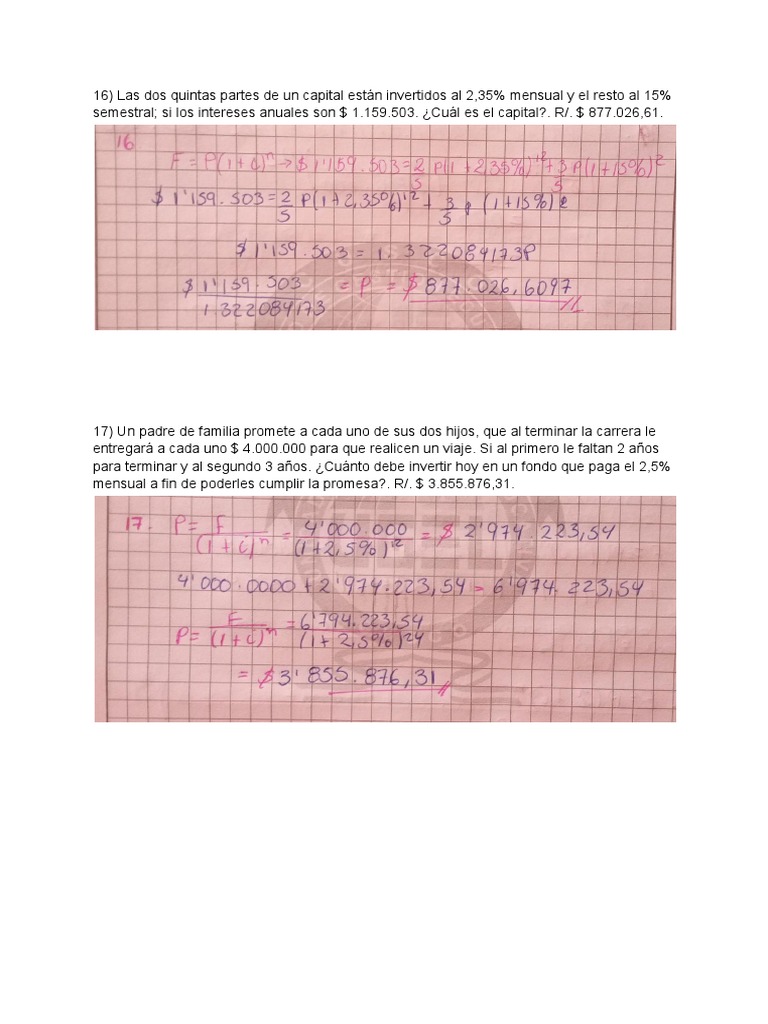 16) Las dos quintas partes de un capital están invertidos al 2,35% mensual y el resto al 15%
semestral; si los intereses anuales son $ 1.159.503. ¿Cuál es el capital?. R/. $ 877.026,61.
16
F = P(1+i)^n → $1'159.503 = 2/5 P(1+2,35%)^12 + 3/5 P(1+15%)^2
$ 1'159.503 = 2/5 P(1+2,35%)^12 + 3/5 P (1+15%)2
$1'159.503 = 1.322084173P
$ 1'159.503 / 1.322084173 = P = $877.026,6097
17) Un padre de familia promete a cada uno de sus dos hijos, que al terminar la carrera le
entregará a cada uno $ 4.000.000 para que realicen un viaje. Si al primero le faltan 2 años
para terminar y al segundo 3 años. ¿Cuánto debe invertir hoy en un fondo que paga el 2,5%
mensual a fin de poderles cumplir la promesa?. R/. $ 3.855.876,31.
17. P = F / (1+i)^n = 4'000.000 / (1+2,5%)^12 = $ 2'974.223,54
4'000.0000 + 2'974.223,54 = 6'974.223,54
P = F / (1+i)^n = 6'794.223,54 / (1+2,5%)24
= $3'855.876,31